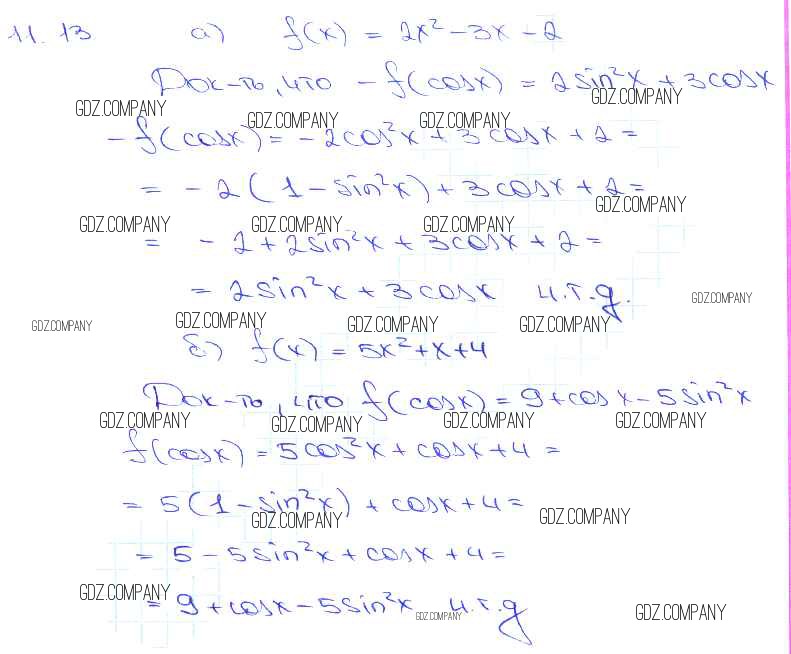 11.13 а) f(x) = 2x² - 3x - 2
Док-ть, что - f(cosx) = 2sin²x + 3cosx
GDZ.COMPANY
GDZ.COMPANY GDZ.COMPANY GDZ.COMPANY
- f(cosx) = - 2cos²x + 3cosx + 2 =
= - 2(1 - sin²x) + 3cosx + 2 =
GDZ.COMPANY
GDZ.COMPANY GDZ.COMPANY GDZ.COMPANY
= - 2 + 2sin²x + 3cosx + 2 =
= 2sin²x + 3cosx ч.т.д.
GDZ.COMPANY
GDZ.COMPANY GDZ.COMPANY GDZ.COMPANY GDZ.COMPANY
б) f(x) = 5x² + x + 4
Док-ть, что f(cosx) = 9 + cosx - 5sin²x
GDZ.COMPANY GDZ.COMPANY GDZ.COMPANY GDZ.COMPANY
f(cosx) = 5cos²x + cosx + 4 =
= 5(1 - sin²x) + cosx + 4 =
GDZ.COMPANY GDZ.COMPANY
= 5 - 5sin²x + cosx + 4 =
GDZ.COMPANY
= 9 + cosx - 5sin²x ч.т.д
GDZ.COMPANY GDZ.COMPANY